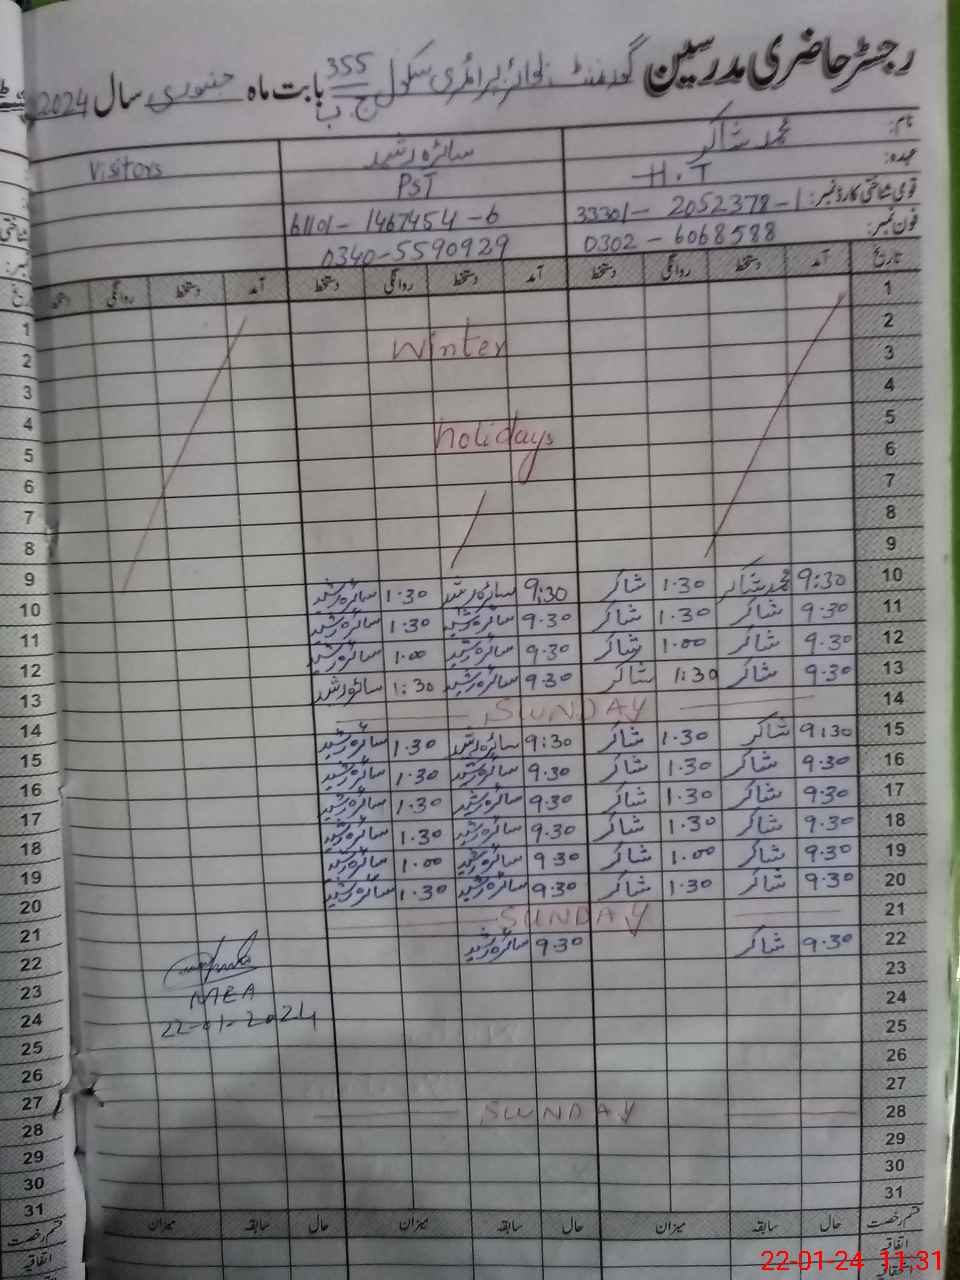 رجسٹر حاضری مدرسین گورنمنٹ بوائز پرائمری سکول 355 ج ب بابت ماہ جنوری سال 2024
نام: محمد شاکر سائرہ رشید Visitors
عہدہ: H.T PST
قومی شناختی کارڈ نمبر: 33301-2052378-1 61101-1467454-6
فون نمبر: 0302-6068588 0340-5590929
تاریخ آمد دستخط روانگی دستخط آمد دستخط روانگی دستخط آمد دستخط روانگی دستخط
1
2
3 Winter
4
5
6 holidays
7
8
9
10 9:30 محمد شاکر 1.30 شاکر 9:30 سائرہ رشید 1.30 سائرہ رشید
11 9.30 شاکر 1.30 شاکر 9.30 سائرہ رشید 1:30 سائرہ رشید
12 9.30 شاکر 1.00 شاکر 9.30 سائرہ رشید 1.00 سائرہ رشید
13 9.30 شاکر 1:30 شاکر 9.30 سائرہ رشید 1:30 سائرہ رشید
14 SUNDAY
15 9:30 شاکر 1.30 شاکر 9:30 سائرہ رشید 1.30 سائرہ رشید
16 9.30 شاکر 1.30 شاکر 9.30 سائرہ رشید 1.30 سائرہ رشید
17 9.30 شاکر 1.30 شاکر 9.30 سائرہ رشید 1.30 سائرہ رشید
18 9.30 شاکر 1.30 شاکر 9.30 سائرہ رشید 1.30 سائرہ رشید
19 9.30 شاکر 1.00 شاکر 9.30 سائرہ رشید 1.00 سائرہ رشید
20 9.30 شاکر 1.30 شاکر 9.30 سائرہ رشید 1.30 سائرہ رشید
21 SUNDAY
22 9.30 شاکر 9.30 سائرہ رشید
23
MEA
24
22-01-2024
25
26
27
28 SUNDAY
29
30
31
قسم رخصت حال سابقہ میزان حال سابقہ میزان حال سابقہ میزان
اتفاقیہ
22-01-24 11,31
1
2
3
4
5
6
7
8
9
10
11
12
13
14
15
16
17
18
19
20
21
22
23
24
25
26
27
28
29
30
31
قسم رخصت
اتفاقیہ